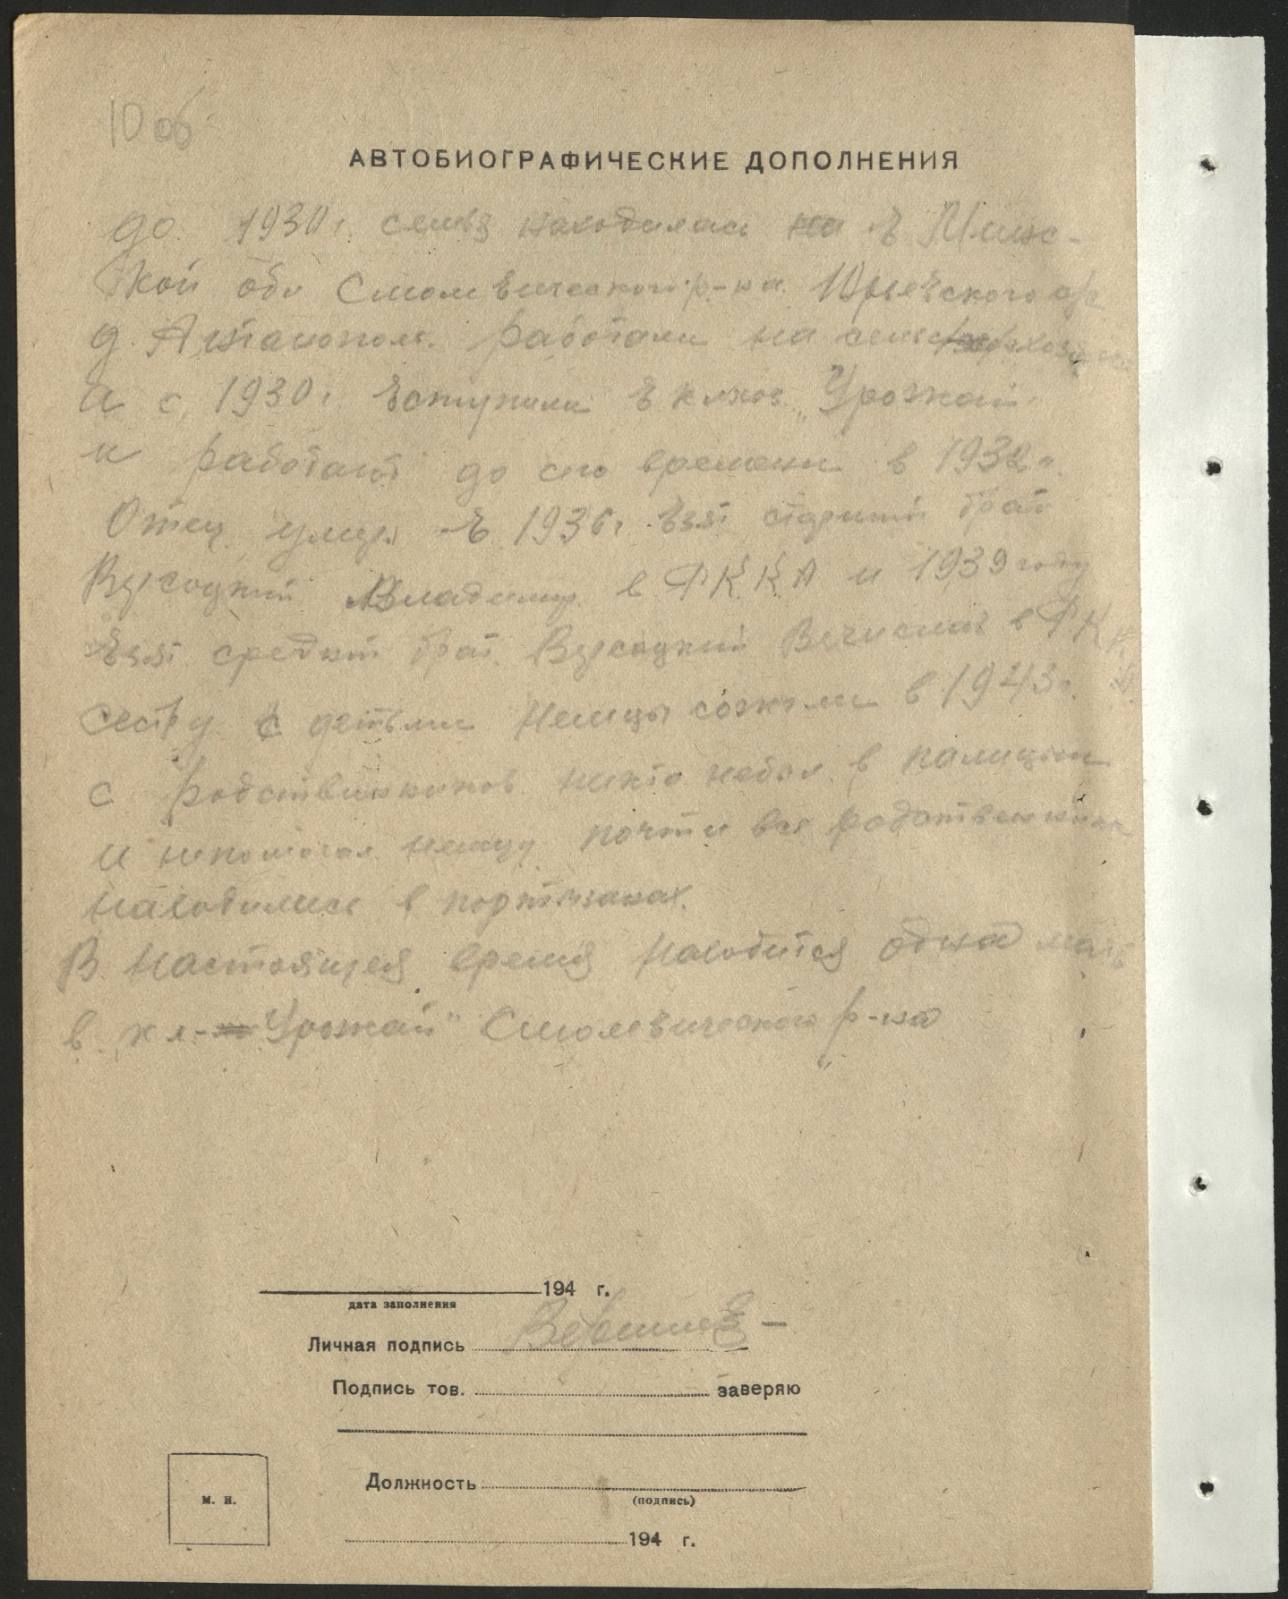 10 об
АВТОБИОГРАФИЧЕСКИЕ ДОПОЛНЕНИЯ
до 1930 г. семья находилась в Минс-
кой обл Смолевического р-на Юрьевского с/с
д. работали на
и с 1930 г. вступили в клхоз „Урожай
и работают до сего времени в 1932 г.
Отец умер в 1936 г. взят старший брат
Высоцкий Владимир в РККА и 1939 году
взят средний брат Высоцкий Вячислав в РККА
сестру с детьми немцы сожгли в 1943 г.
с родственников никто небыл в палиции
и непомогал немцу почти все родственники
находились в портизанах.
В настоящея время находится одна мать
в кл- Урожай" Смолевического р-на
194 г.
дата заполнения
Личная подпись
Подпись тов. заверяю
Должность
(подпись)
м. п.
194 г.